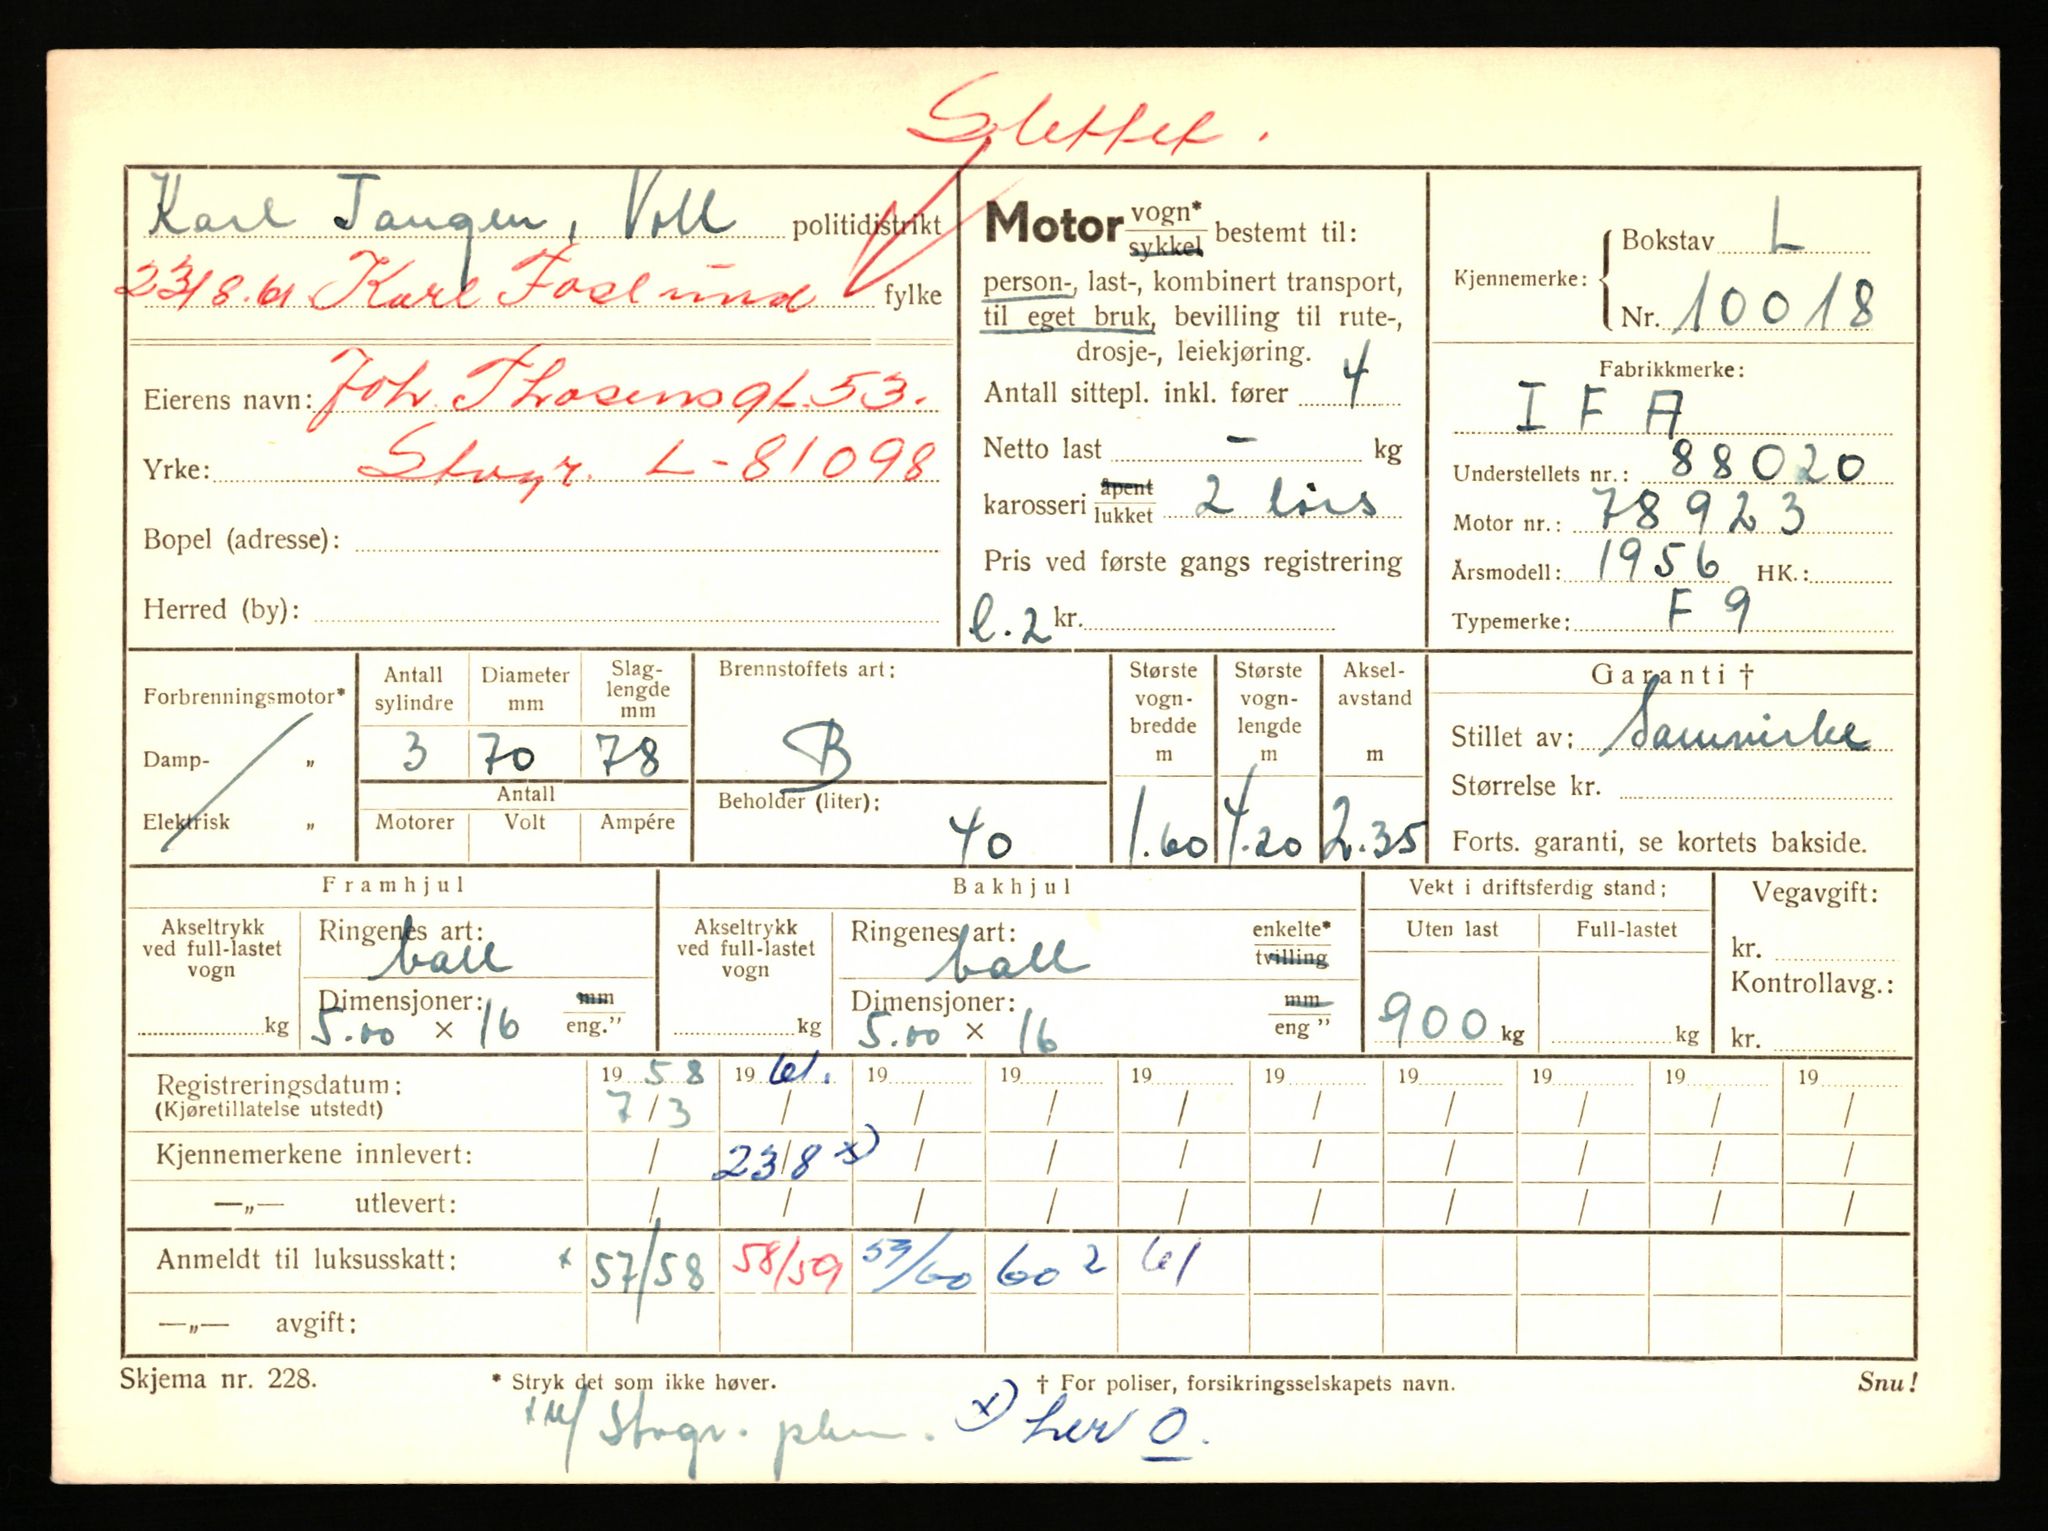 Slettet.
Karl Tangen, Voll politidistrikt
23/8.61 Karl Foslund fylke
Eierens navn: Joh. Thosensgt. 53.
Yrke: Stvgr. L-81098
Bopel (adresse):
Herred (by):
Motor vogn* sykkel bestemt til:
person-, last-, kombinert transport,
til eget bruk, bevilling til rute-,
drosje-, leiekjøring.
Antall sittepl. inkl. fører 4
Netto last - kg
karosseri åpent lukket 2 dørs
Pris ved første gangs registrering
l.2 kr.
Kjennemerke: Bokstav L
Nr. 10018
Fabrikkmerke:
IFA
Understellets nr.: 88020
Motor nr.: 78923
Årsmodell: 1956 HK.:
Typemerke: F9
Forbrenningsmotor*
Damp- „
Elektrisk „
Antall sylindre 3
Diameter mm 70
Slag-lengde mm 78
Antall
Motorer Volt Ampére
Brennstoffets art:
B
Beholder (liter):
40
Største vogn-bredde m 1.60
Største vogn-lengde m 4.20
Aksel-avstand m 2.35
Garanti †
Stillet av: Samvirke
Størrelse kr.
Forts. garanti, se kortets bakside.
Framhjul
Akseltrykk ved full-lastet vogn kg
Ringenes art: ball
Dimensjoner: mm
5.00 × 16 eng."
Bakhjul
Akseltrykk ved full-lastet vogn kg
Ringenes art: ball enkelte* tvilling
Dimensjoner: mm
5.00 × 16 eng "
Vekt i driftsferdig stand:
Uten last Full-lastet
900 kg kg
Vegavgift:
kr.
Kontrollavg.:
kr.
Registreringsdatum: 19 58 19 61. 19 19 19 19 19 19 19 19
(Kjøretillatelse utstedt) 7/3 / / / / / / / / /
Kjennemerkene innlevert: / 23/8 x) / / / / / / / /
—„— utlevert: / / / / / / / / / /
Anmeldt til luksusskatt: x 57/58 58/59 59/60 60 2 61
—„— avgift:
Skjema nr. 228. * Stryk det som ikke høver. † For poliser, forsikringsselskapets navn. Snu!
x) her O.